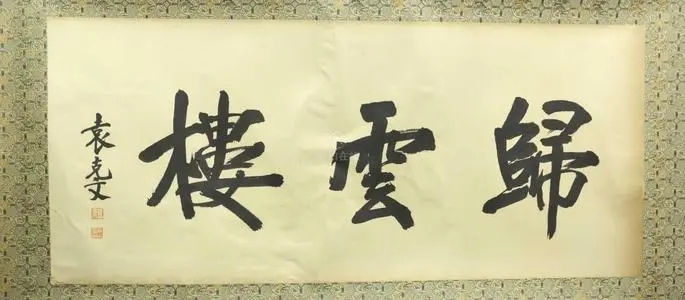 歸雲樓
袁克文